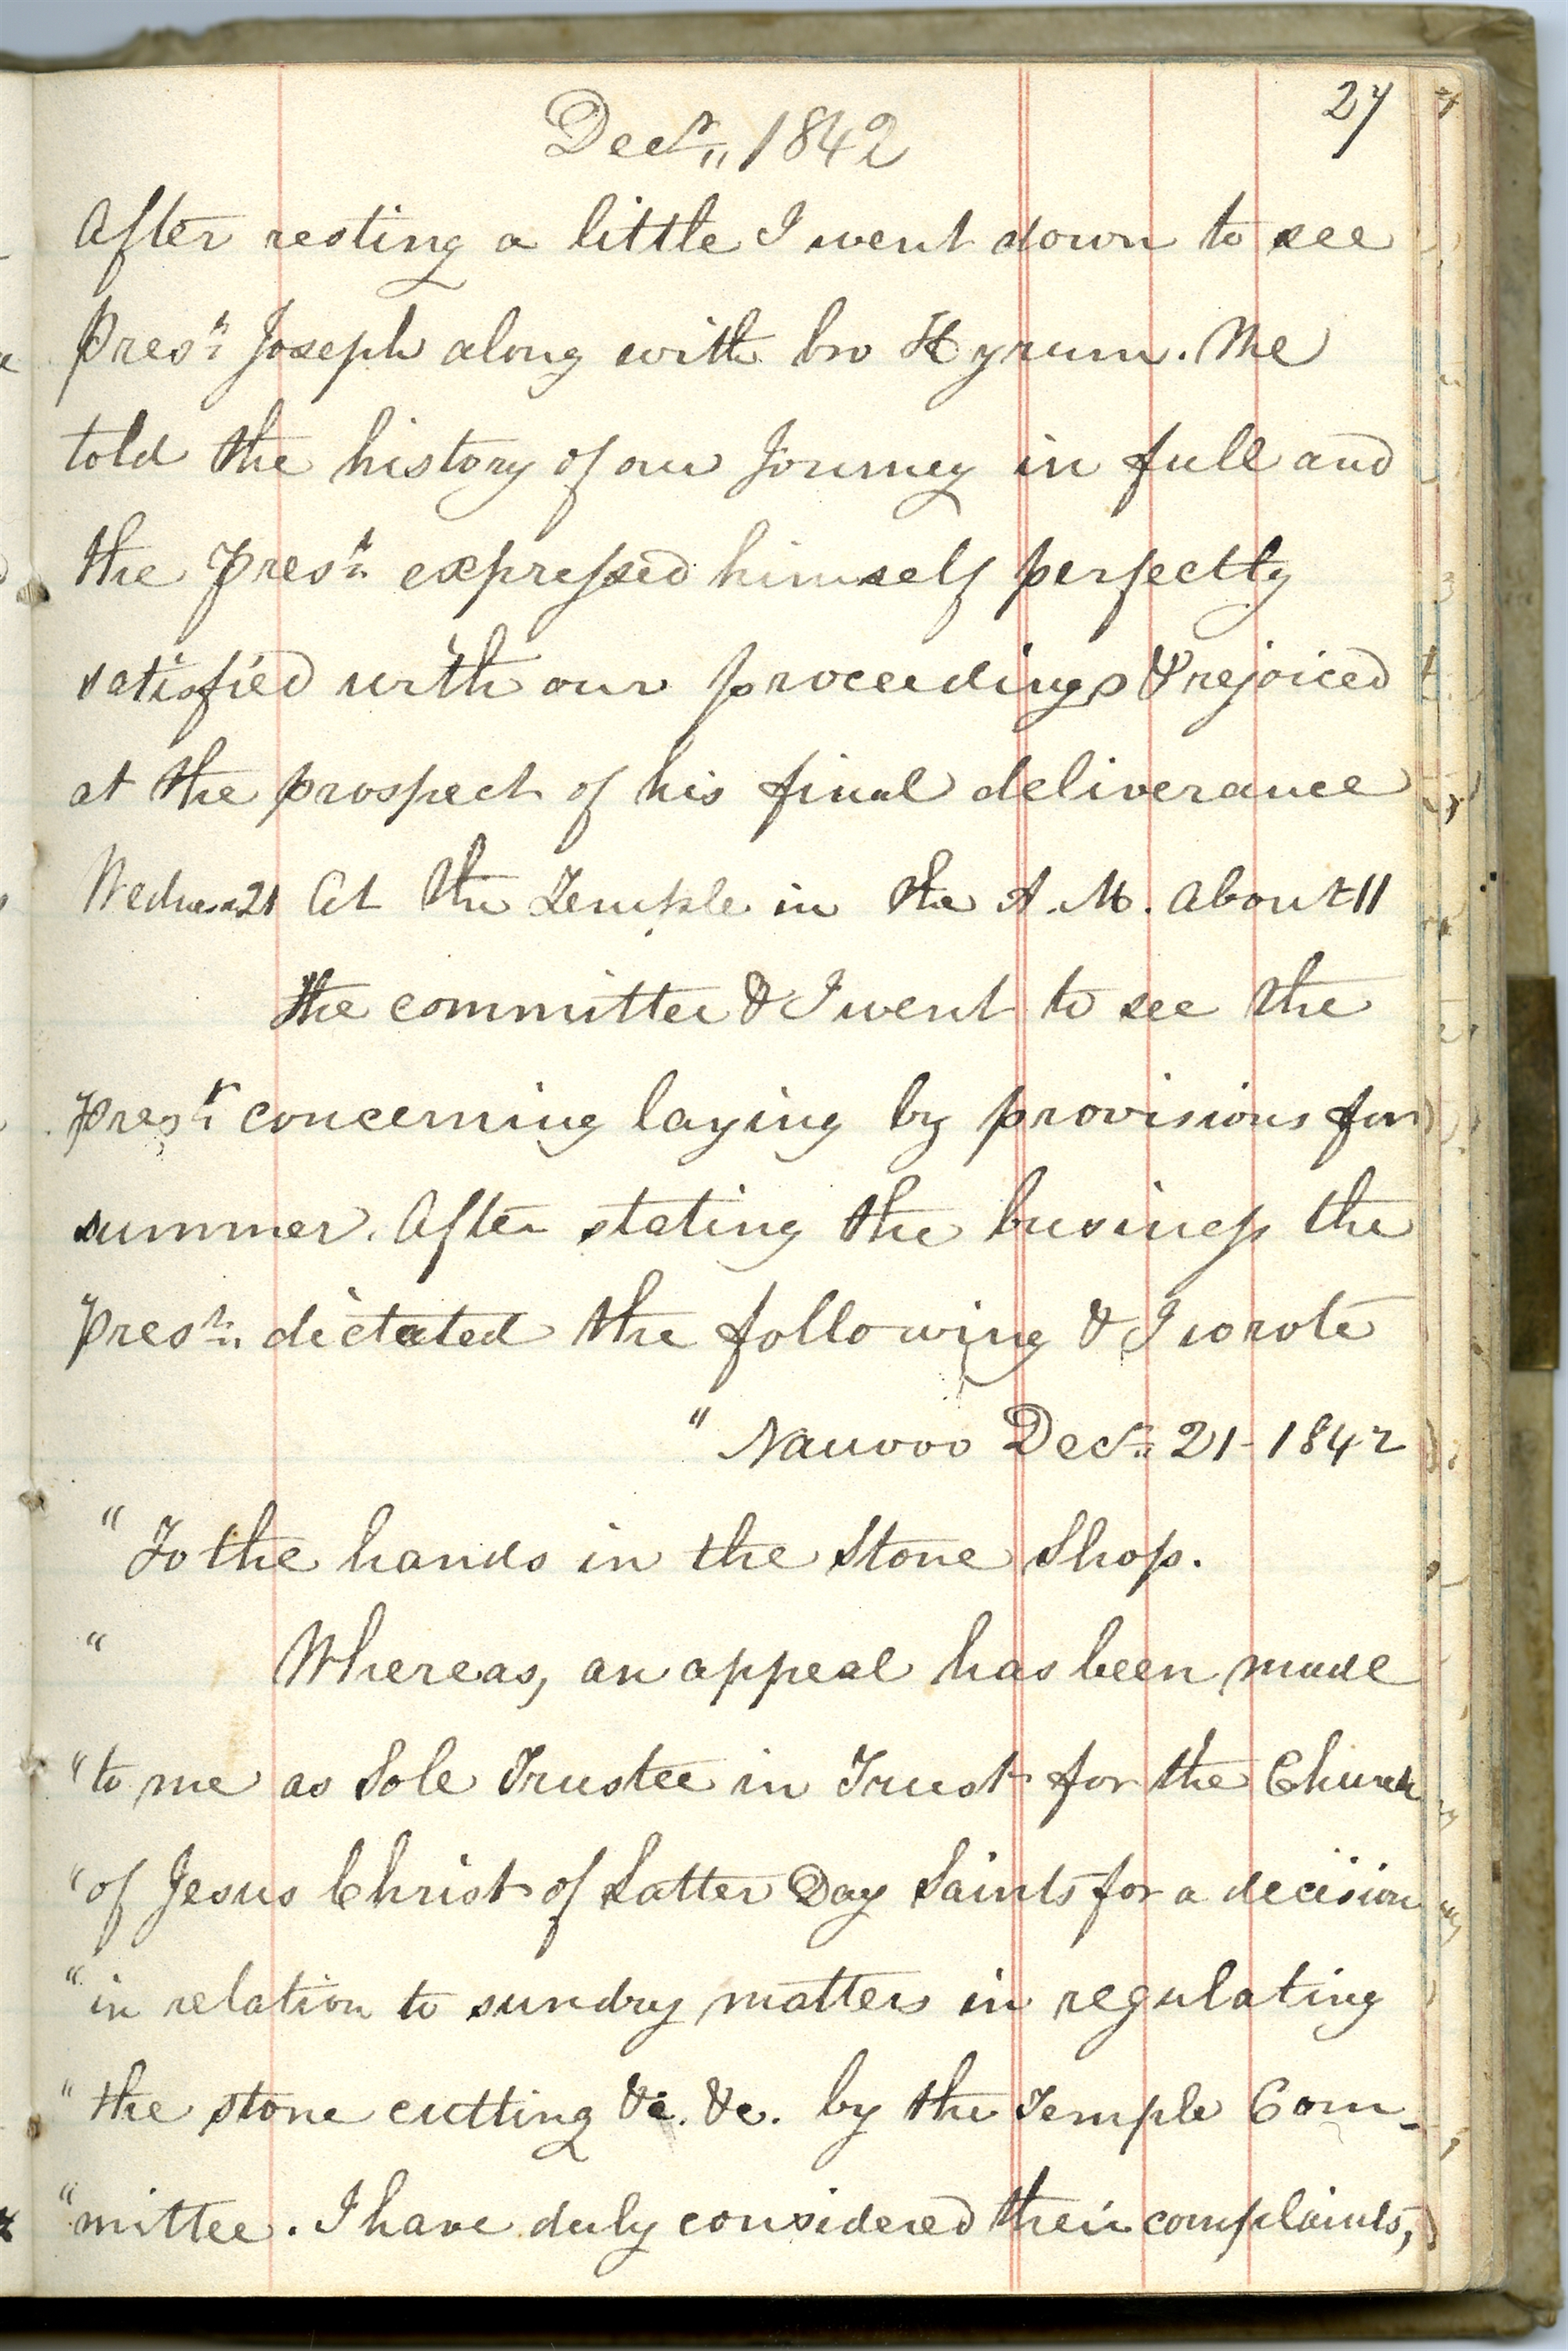 27
Decr. 1842
After resting a little I went down to see
Prest. Joseph along with bro Hyrum. We
told the history of our Journey in full and
the Prest. expressed himself perfectly
satisfied with our proceedings & rejoiced
at the prospect of his final deliverance
Wednes. 21 At the Temple in the A.M. About 11
the committee & I went to see the
Prest. concerning laying by provisions for
summer. After stating the business the
Prest. dictated the following & I wrote
" Nauvoo Decr. 21- 1842
" To the hands in the Stone Shop.
" Whereas, an appeal has been made
" to me as Sole Trustee in Trust for the Church
" of Jesus Christ of Latter Day Saints for a decision
" in relation to sundry matters in regulating
" the stone cutting &c. &c. by the Temple Com-
" mittee. I have duly considered their complaints,